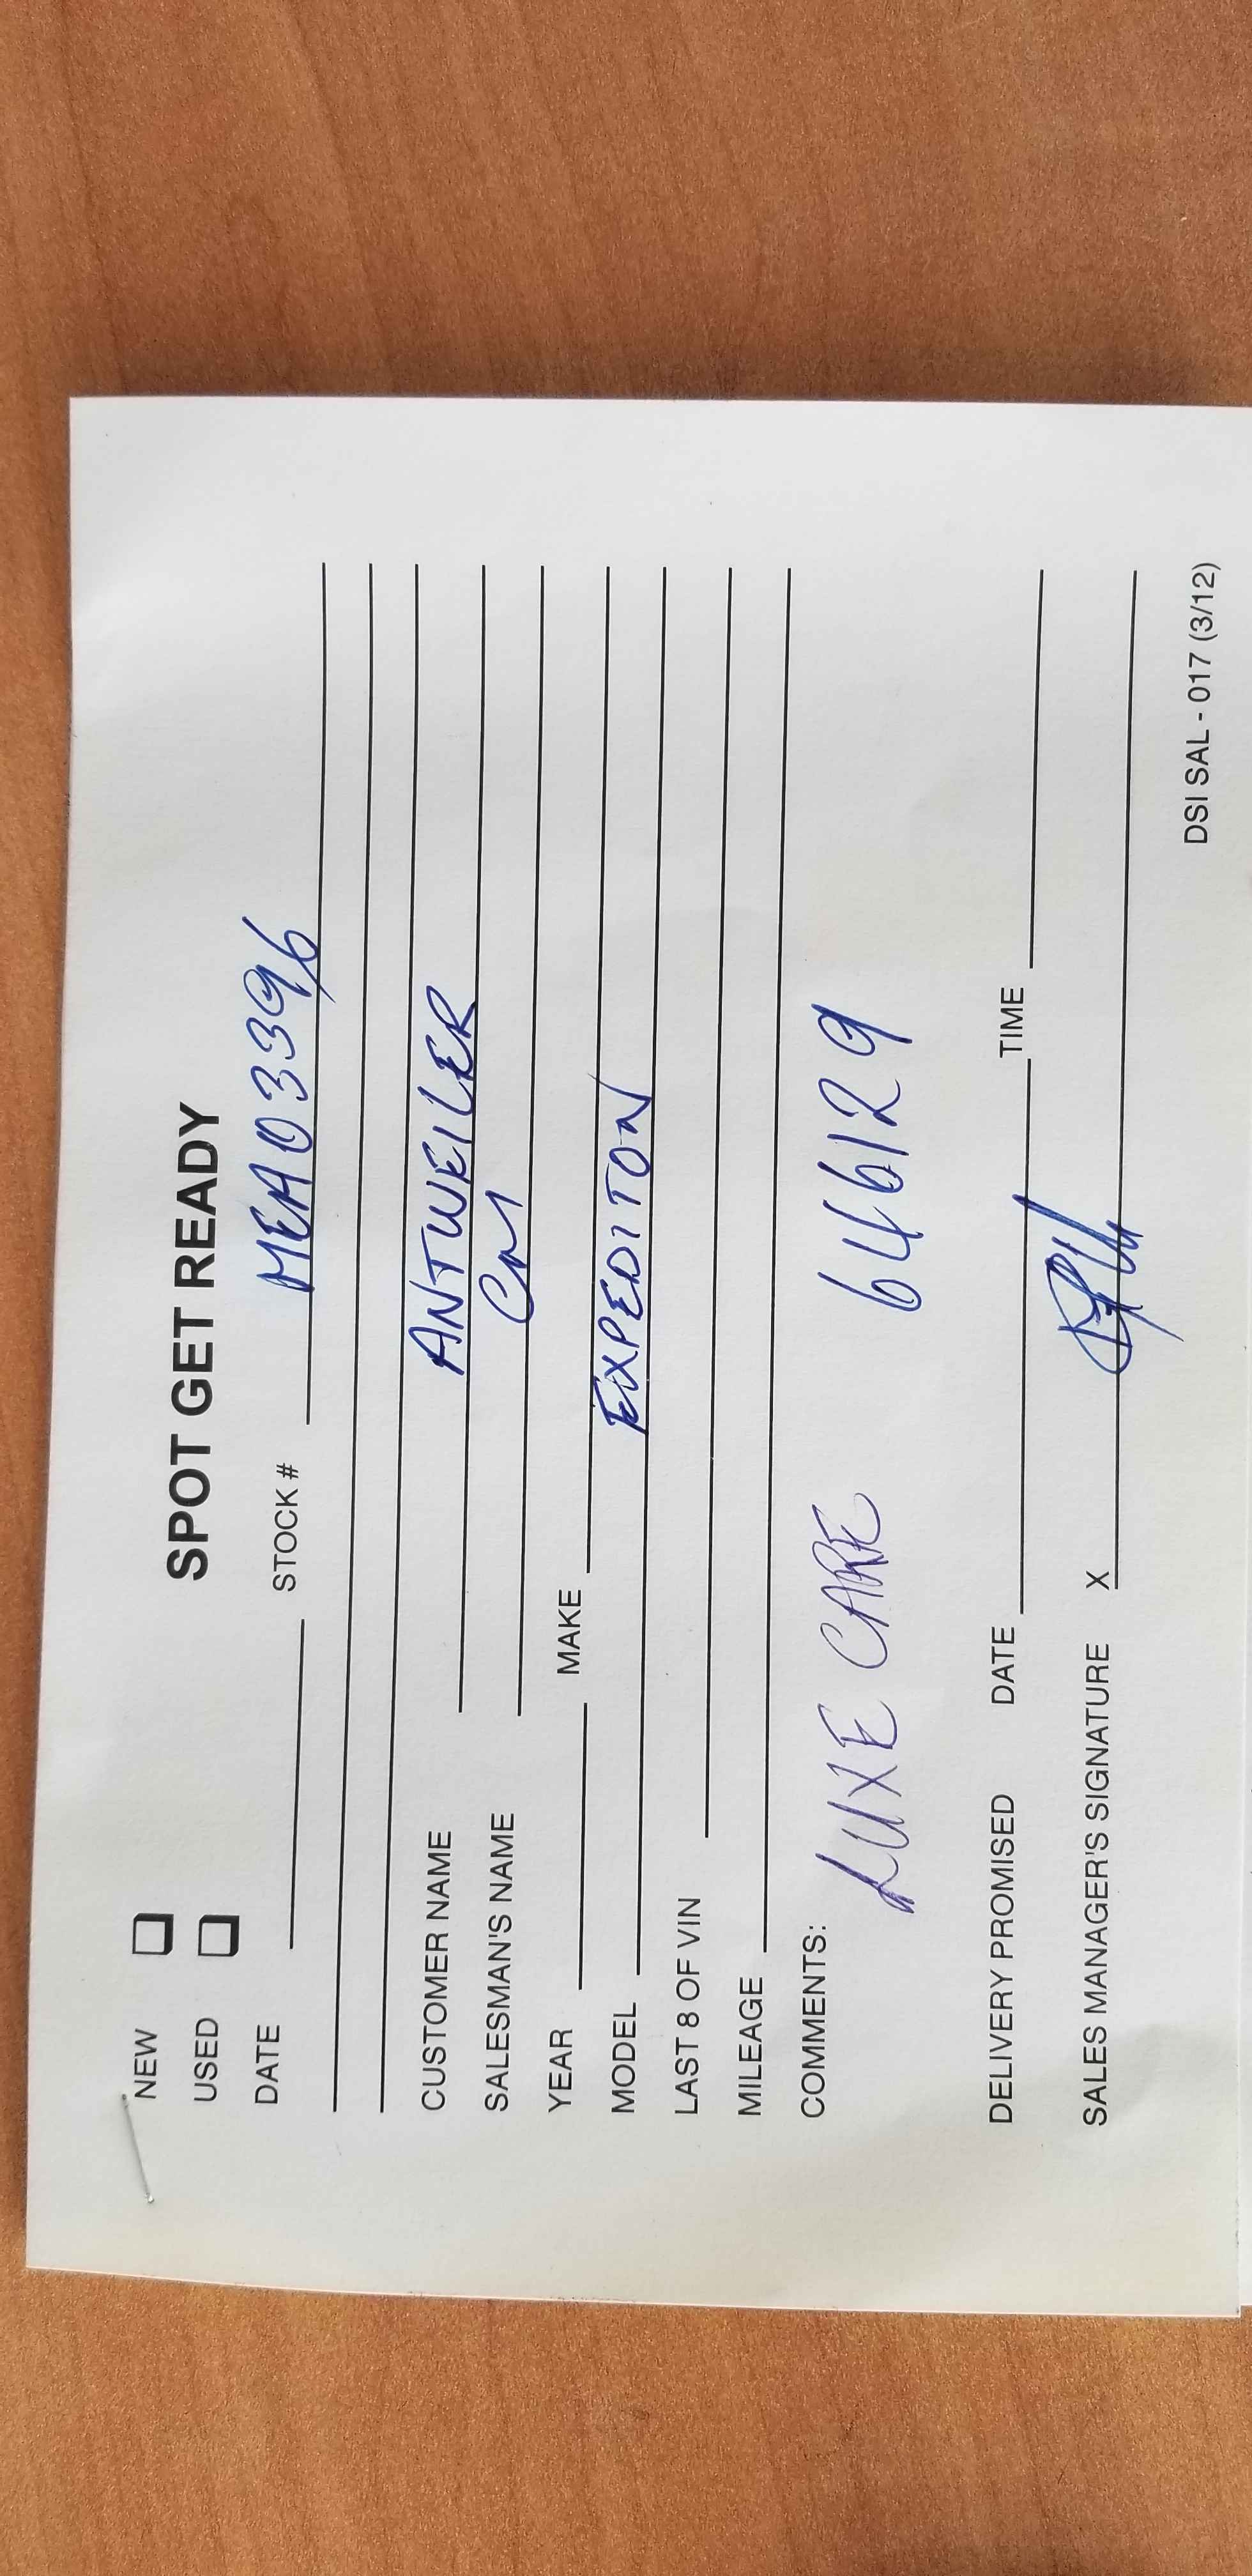 SPOT GET READY
NEW
USED
DATE STOCK # MEA03396
CUSTOMER NAME ANTWEILER
SALESMAN'S NAME
YEAR MAKE
MODEL EXPEDITON
LAST 8 OF VIN
MILEAGE
COMMENTS:
LUXE CARE 646129
DELIVERY PROMISED DATE TIME
SALES MANAGER'S SIGNATURE X
DSI SAL - 017 (3/12)